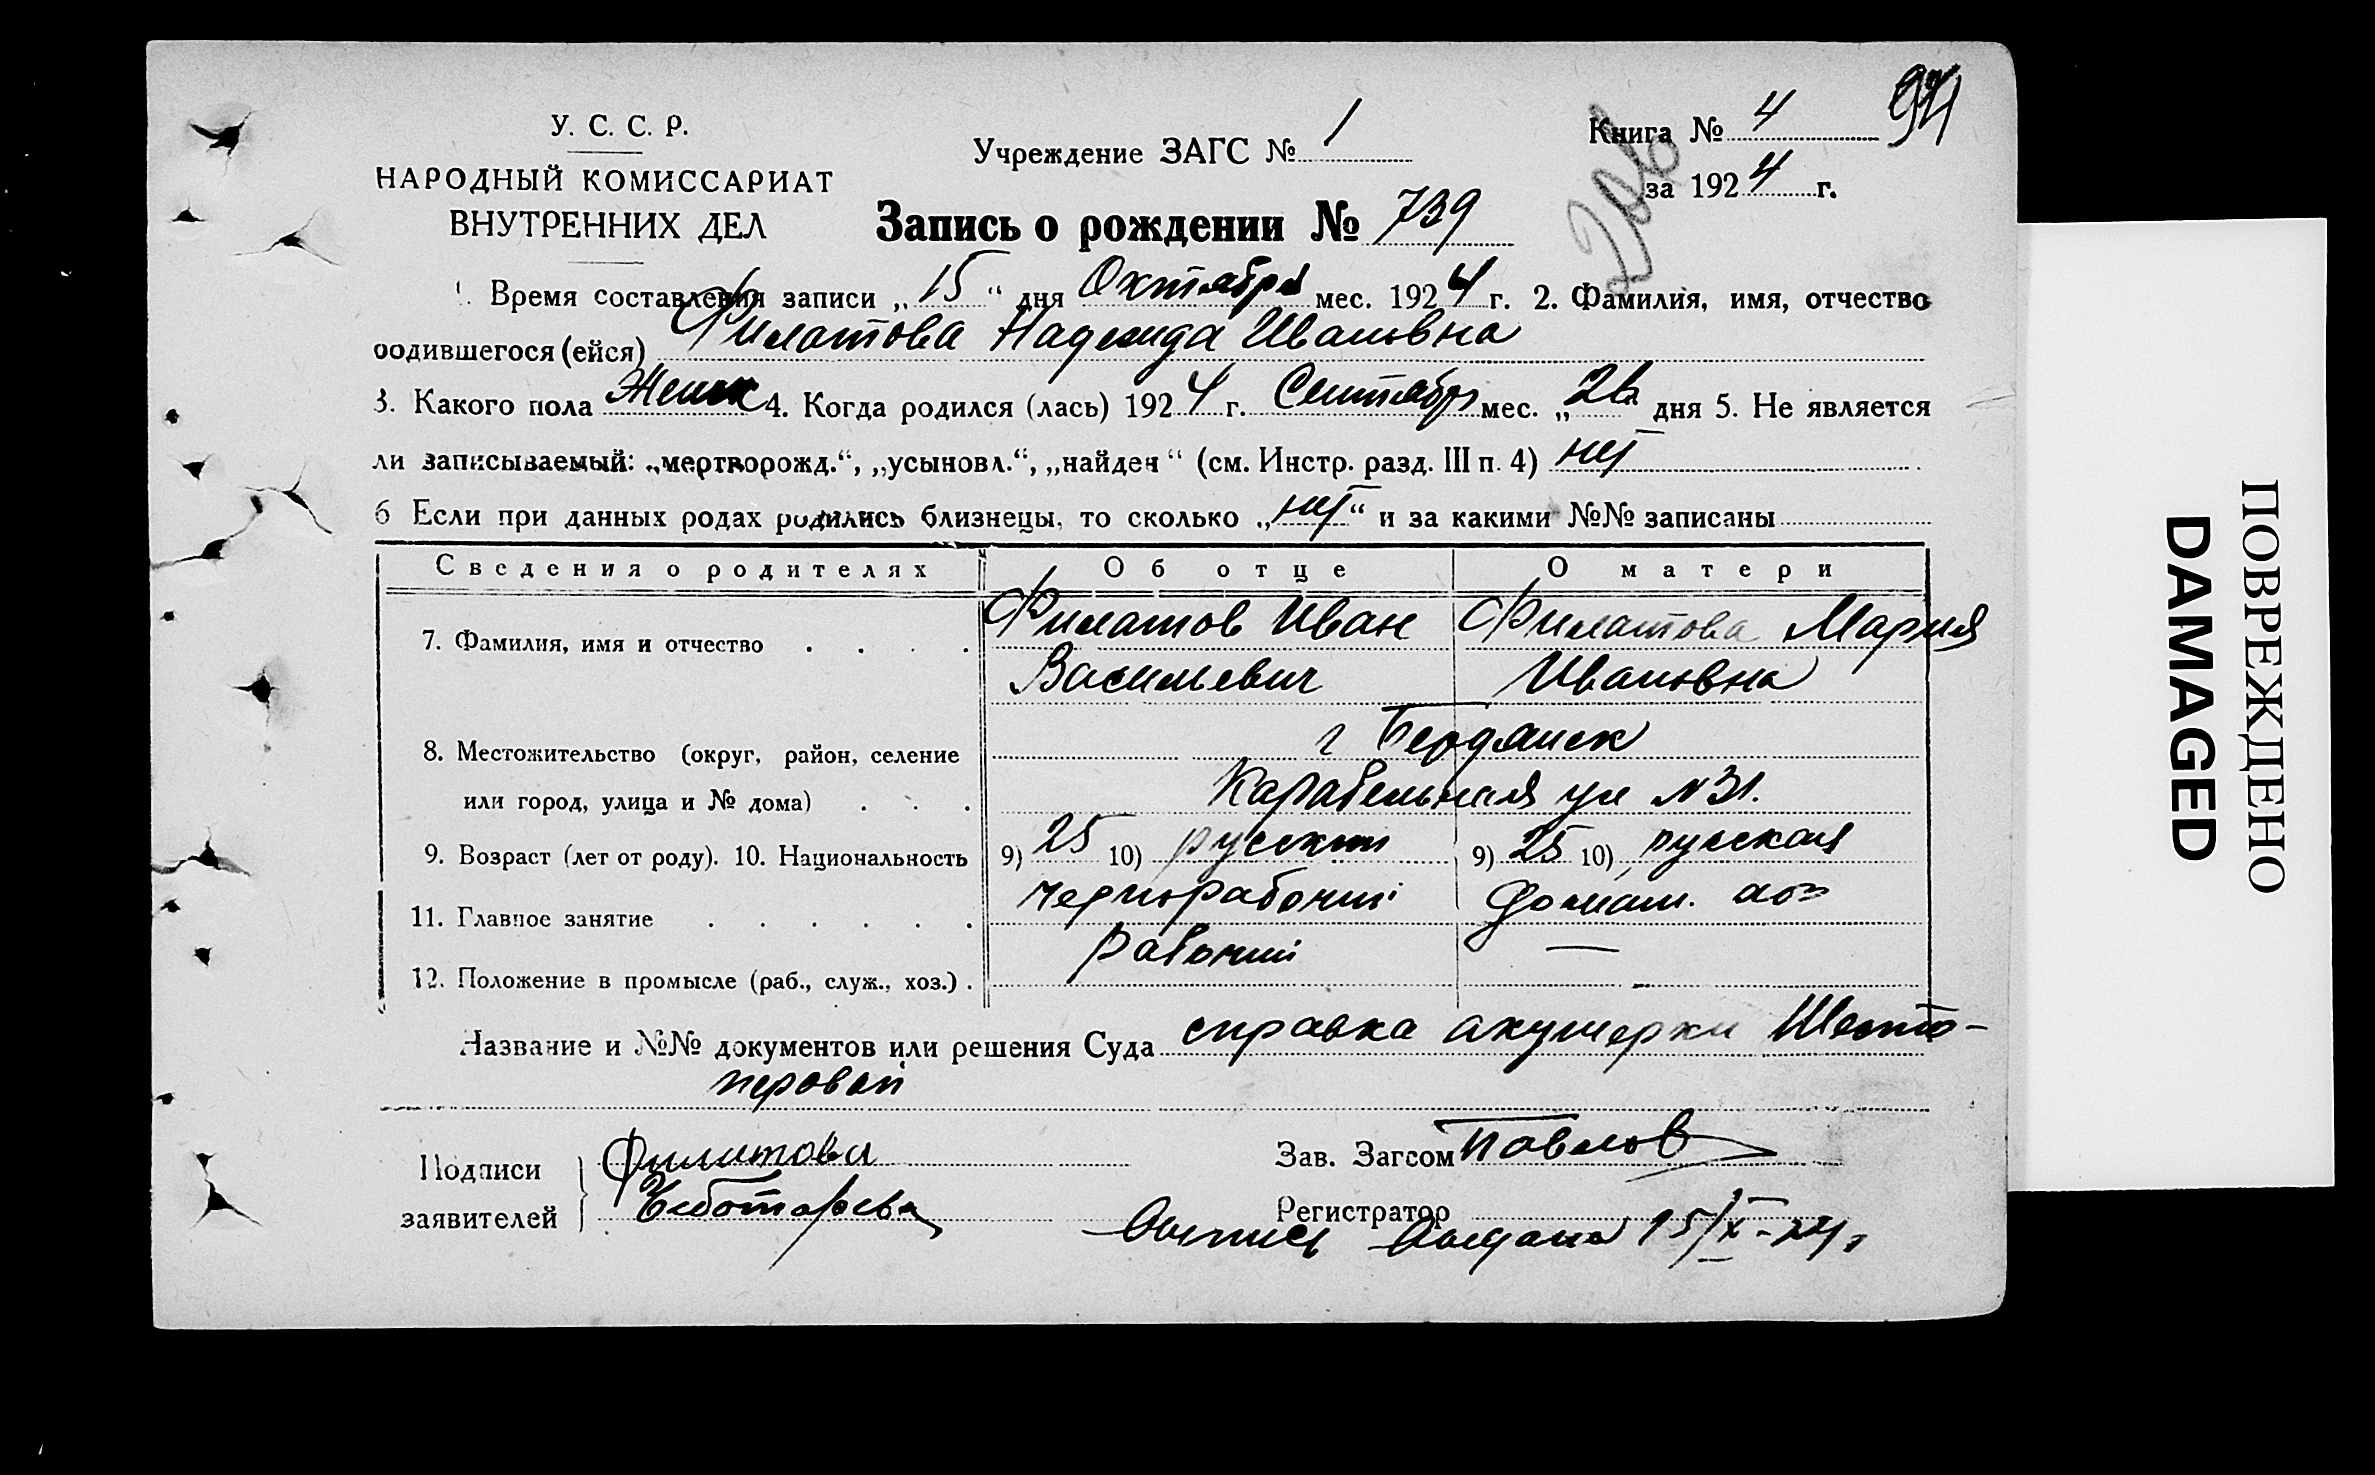 У. С. С. Р.
НАРОДНЫЙ КОМИССАРИАТ
ВНУТРЕННИХ ДЕЛ
Учреждение ЗАГС № 1
Книга № 4
за 1924 г.
Запись о рождении № 739
1. Время составления записи „15“ дня Октября мес. 1924 г. 2. Фамилия, имя, отчество
родившегося (ейся) Филатова Надежда Ивановна
3. Какого пола Женск 4. Когда родился (лась) 1924 г. Сентября мес. „ дня 5. Не является
ли записываемый: „мертворожд.“, „усыновл.“, „найден“ (см. Инстр. разд. III п. 4) нет
6 Если при данных родах родились близнецы, то сколько „нет“ и за какими №№ записаны
Сведения о родителях Об отце О матери
7. Фамилия, имя и отчество Филатов Иван Филатова Мария
Васильевич Ивановна
8. Местожительство (округ, район, селение г Бердянск
или город, улица и № дома) Карабельная ул №31.
9. Возраст (лет от роду). 10. Национальность 9) 25 10) русский 9) 25 10) русская
11. Главное занятие чернорабочий домаш. хоз
12. Положение в промысле (раб., служ., хоз.) рабочий —
Название и №№ документов или решения Суда справка акушерки Шесто-
перовой
Подписи Филатова Зав. Загсом Павлов
заявителей Чеботарева Регистратор
Выпись выдана 15/X-24г.
ПОВРЕЖДЕНО
DAMAGED